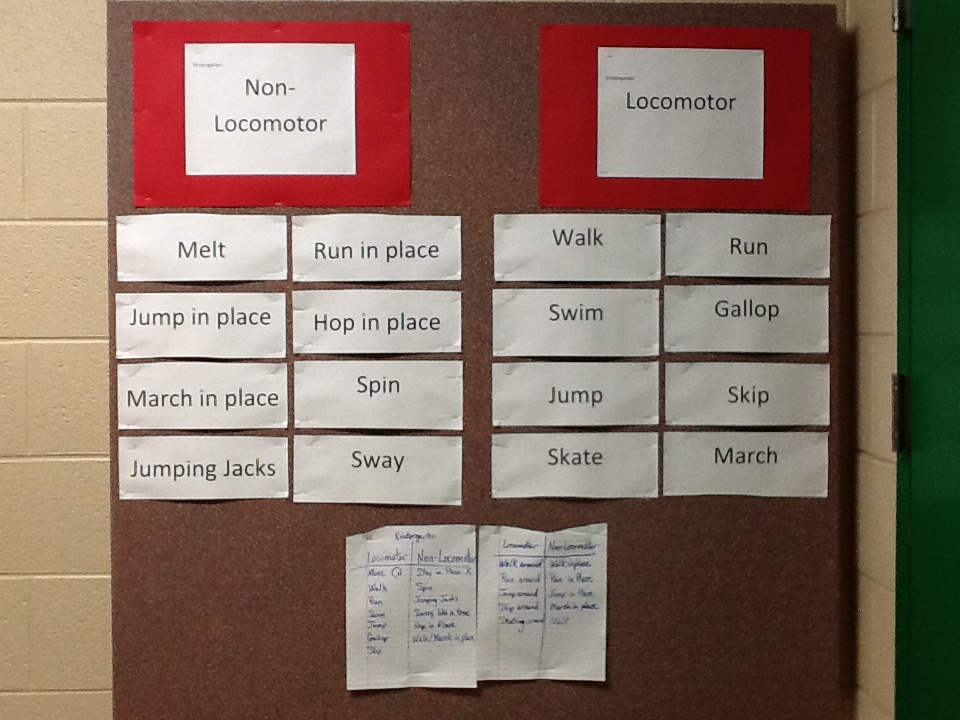 Kindergarten
Non-
Locomotor
Kindergarten
Locomotor
Melt
Run in place
Jump in place
Hop in place
March in place
Spin
Jumping Jacks
Sway
Walk
Run
Swim
Gallop
Jump
Skip
Skate
March
Kindergarten
Locomotor Non-Locomotor
Move Stay in Place X
Walk Spin
Run Jumping Jacks
Swim Sway like a tree
Jump Hop in Place
Gallop Walk/March in place
Skip
Locomotor Non-Locomotor
Walk around Walk in place
Run around Run in Place
Jump around Jump in Place
Skip around March in place
Skating around Melt